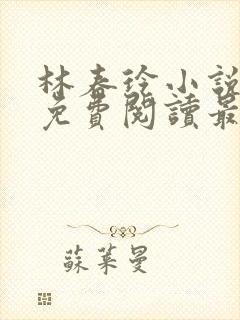 林春徐小說
免費閱讀最
蘇葉曼